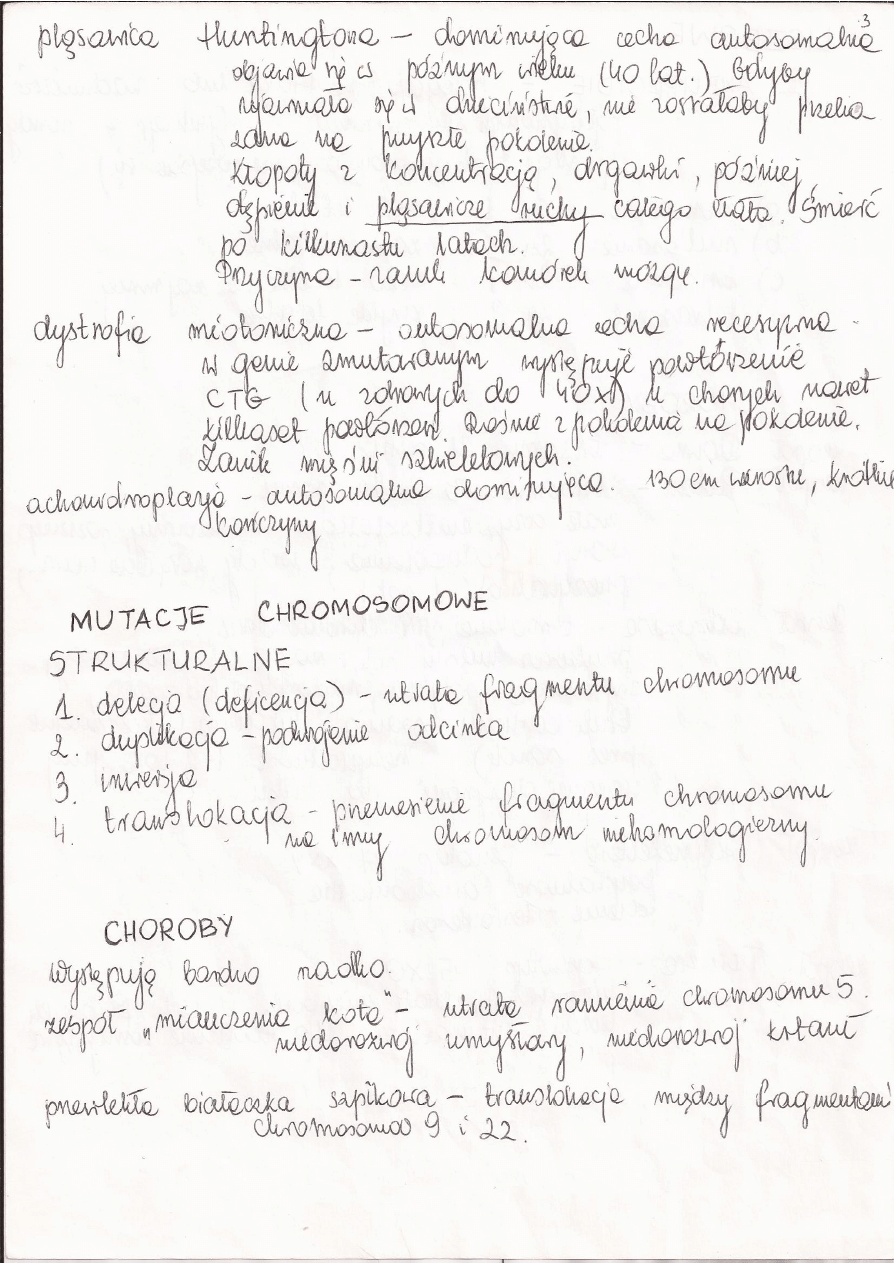 3
pląsawica Huntingtona – dominująca cecha autosomalna
objawia się w późnym wieku (40 lat.) Gdyby
ujawniała się w dzieciństwie, nie zostałaby przeka
zana na przyszłe pokolenie.
Kłopoty z koncentracją, drgawki, później
otępienie i pląsawicze ruchy całego ciała. Śmierć
po kilkunastu latach.
Przyczyna – zanik komórek mózgu.
dystrofia miotoniczna – autosomalna cecha recesywna.
w genie zmutowanym występuje powtórzenie
CTG (u zdrowych do 40x) u chorych nawet
kilkaset powtórzeń. Rośnie z pokolenia na pokolenie.
Zanik mięśni szkieletowych.
achondroplazja – autosomalna dominująca. 130 cm wzrostu, krótkie
kończyny
MUTACJE CHROMOSOMOWE
STRUKTURALNE
1. delecja (deficencja) – utrata fragmentu chromosomu
2. duplikacja – podwojenie odcinka
3. inwersja
4. translokacja – przeniesienie fragmentu chromosomu
na inny chromosom niehomologiczny.
CHOROBY
Występują bardzo rzadko.
zespół „miauczenia kota” – utrata ramienia chromosomu 5.
niedorozwój umysłowy, niedorozwój krtani
przewlekła białaczka szpikowa – translokacja między fragmentami
chromosomów 9 i 22.